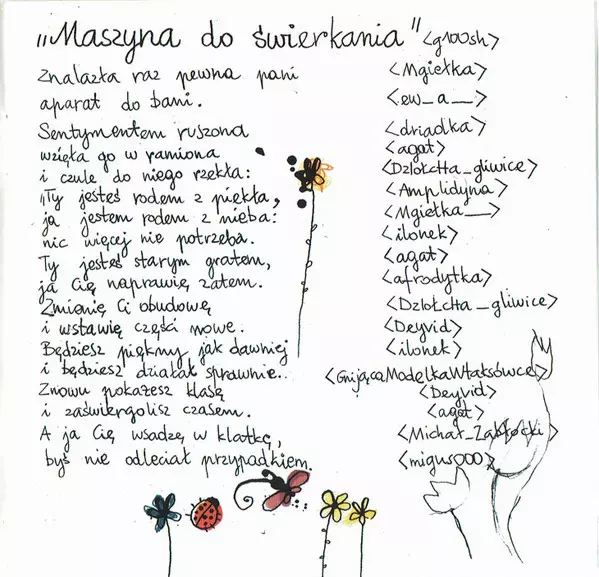 „Maszyna do świerkania" <g100sh>
Znalazła raz pewna pani <Mgiełka>
aparat do bani. <ew_a__>
Sentymentem ruszona <driadka>
wzięła go w ramiona <agat>
i czule do niego rzekła: <DzlotcHa_gliwice>
„Ty jesteś rodem z piekła, <Amplidyna>
ja jestem rodem z nieba: <Mgiełka__>
nic więcej nie potrzeba. <ilonek>
Ty jesteś starym gratem, <agat>
ja Cię naprawię zatem. <afrodytka>
Zmienię Ci obudowę <DzlotcHa_gliwice>
i wstawię części nowe. <Deyvid>
Będziesz piękny jak dawniej <ilonek>
i będziesz działał sprawnie.. <GnijącaModelkaWłaksówce>
Znowu pokażesz klasę <Deyvid>
i zaświergolisz czasem. <agat>
A ja Cię wsadzę w klatkę, <Michał_Zabłocki>
byś nie odleciał przypadkiem. <migus000>